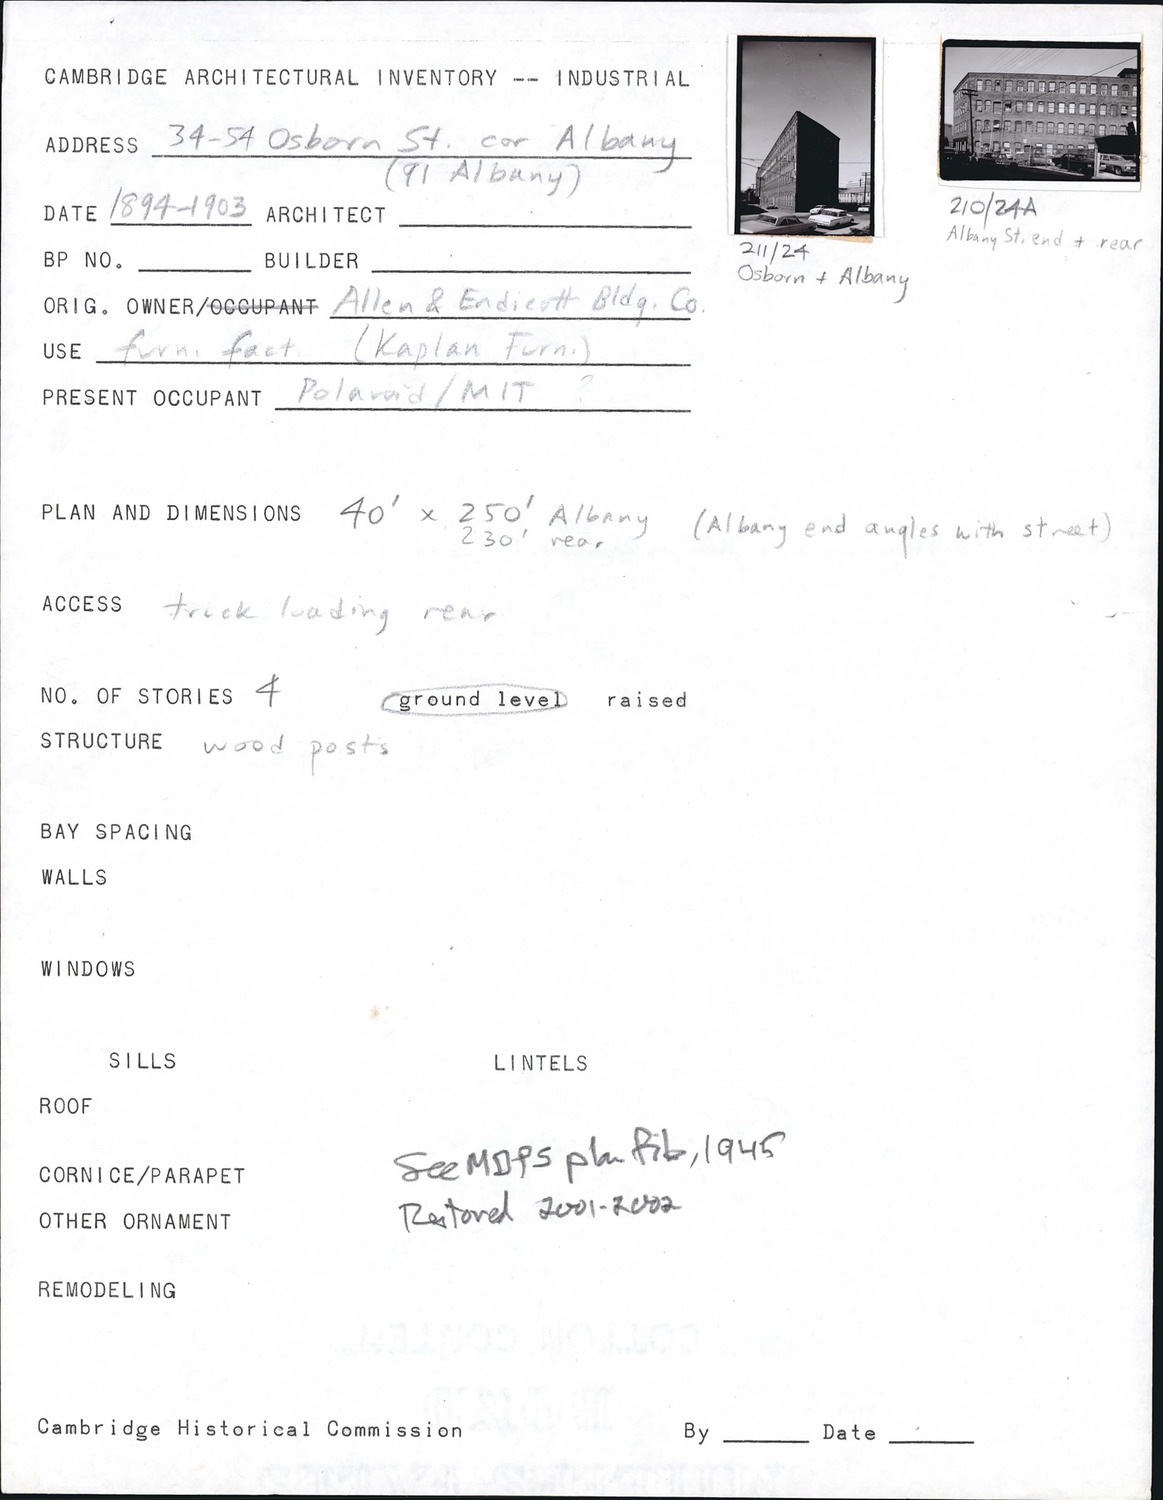 CAMBRIDGE ARCHITECTURAL INVENTORY -- INDUSTRIAL
ADDRESS 34-54 Osborn St. cor Albany
(91 Albany)
DATE 1894-1903 ARCHITECT
BP NO. BUILDER
ORIG. OWNER/OCCUPANT Allen & Endicott Bldg. Co.
USE furn. fact. (Kaplan Furn.)
PRESENT OCCUPANT Polaroid/MIT ?
211/24
Osborn + Albany
210/24A
Albany St. end + rear
PLAN AND DIMENSIONS 40' x 250' Albany (Albany end angles with street)
230' rear
ACCESS truck loading rear
NO. OF STORIES 4 ground level raised
STRUCTURE wood posts
BAY SPACING
WALLS
WINDOWS
SILLS LINTELS
ROOF
CORNICE/PARAPET See MDPS plan , 1945
OTHER ORNAMENT Restored 2001-2002
REMODELING
Cambridge Historical Commission By Date